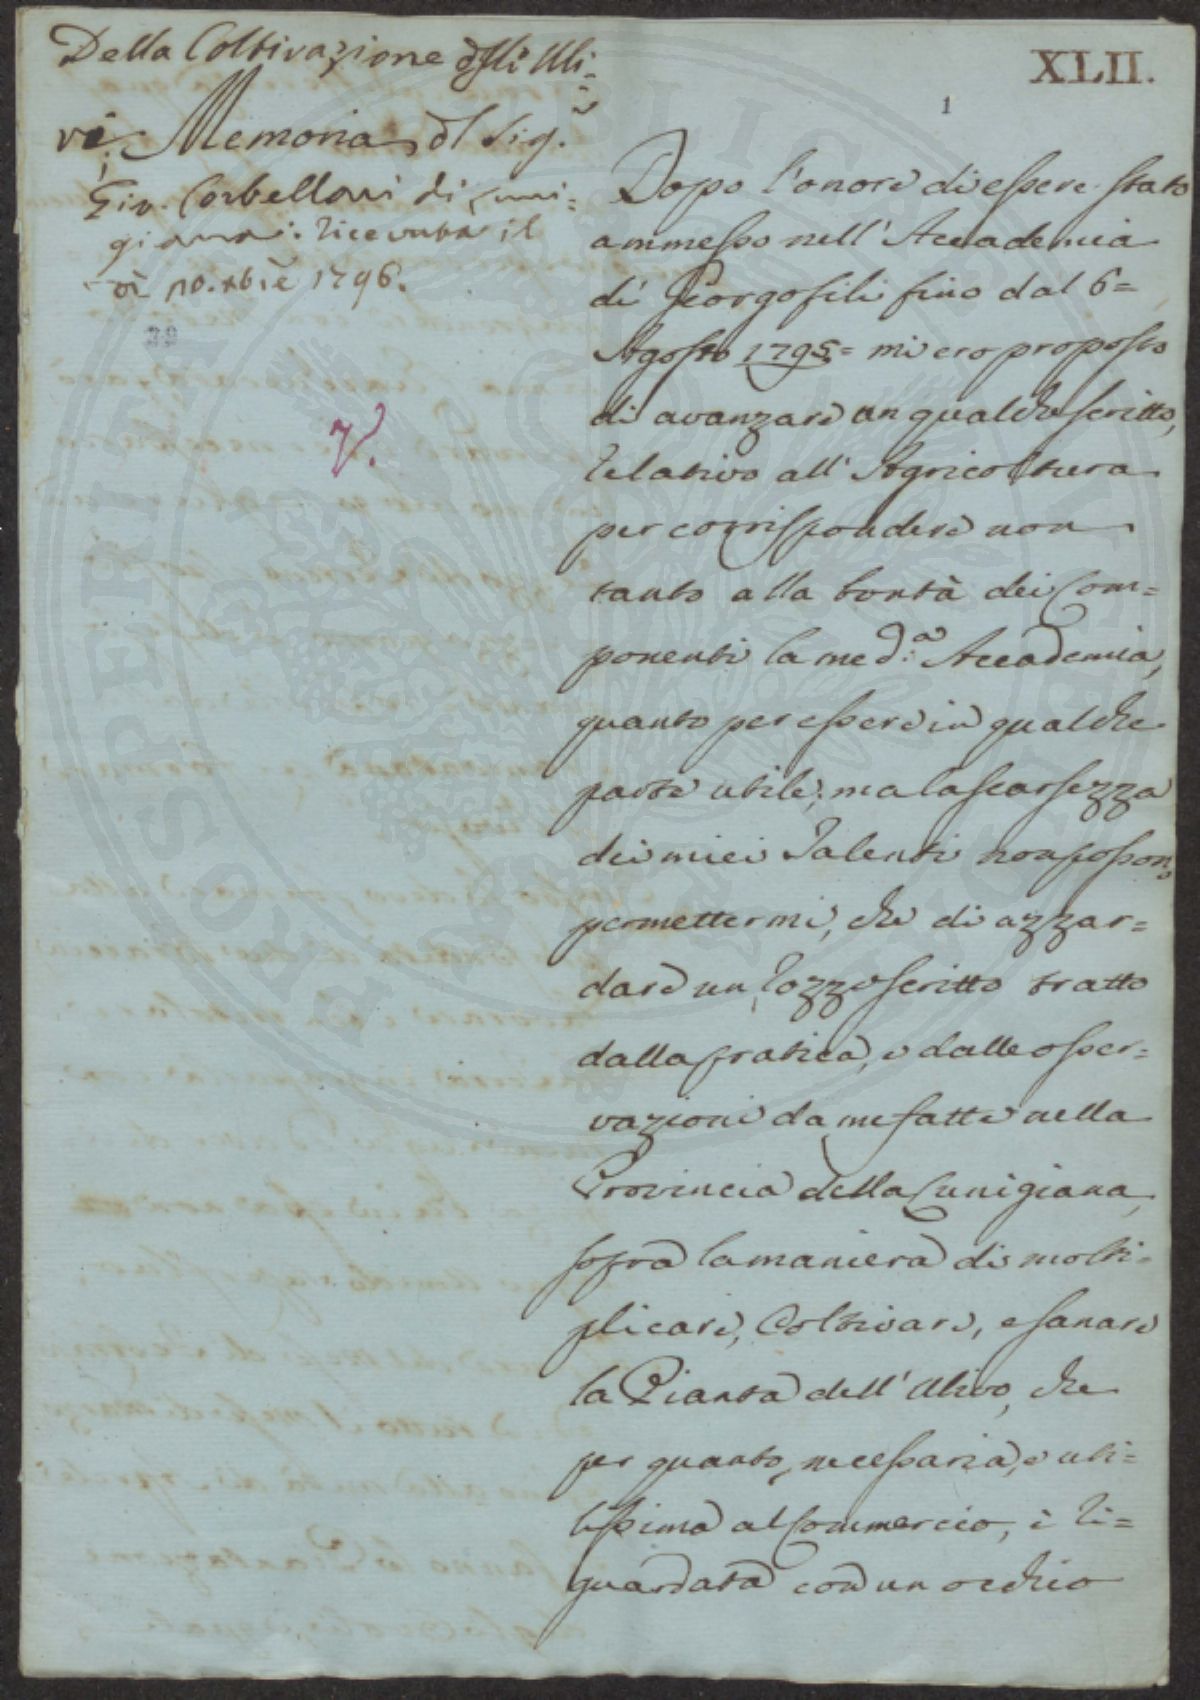 Della Coltivazione dgli Uli-
vi. Memoria dl Sig.r
Gio. Corbelloni di Luni-
giana: ricevuta il
dì 10. xbre 1796.
39
V.
XLII.
1
Dopo l'onore di essere stato
ammesso nell' Accademia
di Georgofili fino dal 6=
Agosto 1795= mi ero proposto
di avanzare un qualche scritto,
relativo all' Agricoltura
per corrispondere non
tanto alla bontà dei Com=
ponenti la med:a Accademia,
quanto per essere in qualche
parte utile; ma la scarsezza
dei miei Talenti non posson
permettermi, che di azzar=
dare un rozzo scritto tratto
dalla pratica, e dalle osser=
vazioni da me fatte nella
Provincia della Lunigiana,
sopra la maniera di molti=
plicare, Coltivare, e sanare
la Pianta dell' Ulivo, che
per quanto necessaria, e uti=
lissima al Commercio, è ri=
guardata con un occhio
PROSPERITATI PUBLICAE AUGENDAE